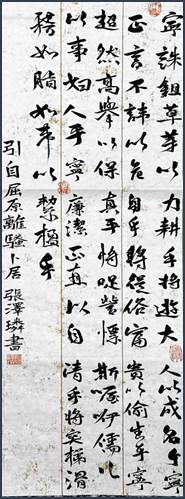 寧誅鉏草茅以力耕乎將遊大人以成名乎寧
正言不諱以危身乎將從俗富貴以偷生乎寧
超然高舉以保真乎將哫訾慄斯喔咿儒兒
以事婦人乎寧廉潔正直以自清乎將突梯滑
稽如脂如韋以絜楹乎
引自屈原離騷卜居 張澤璘書